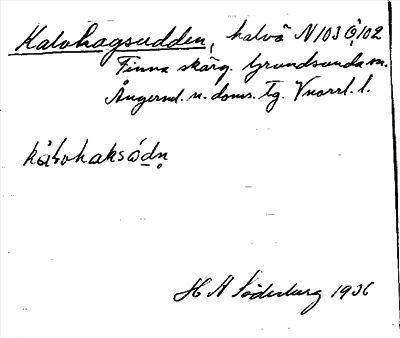 Kalvhagsudden, halvö N103 Ö102
Finna skärg. Grundsunda sn.
Ångerml. n. doms. tg. Vnorrl. l.
H A Söderberg 1936